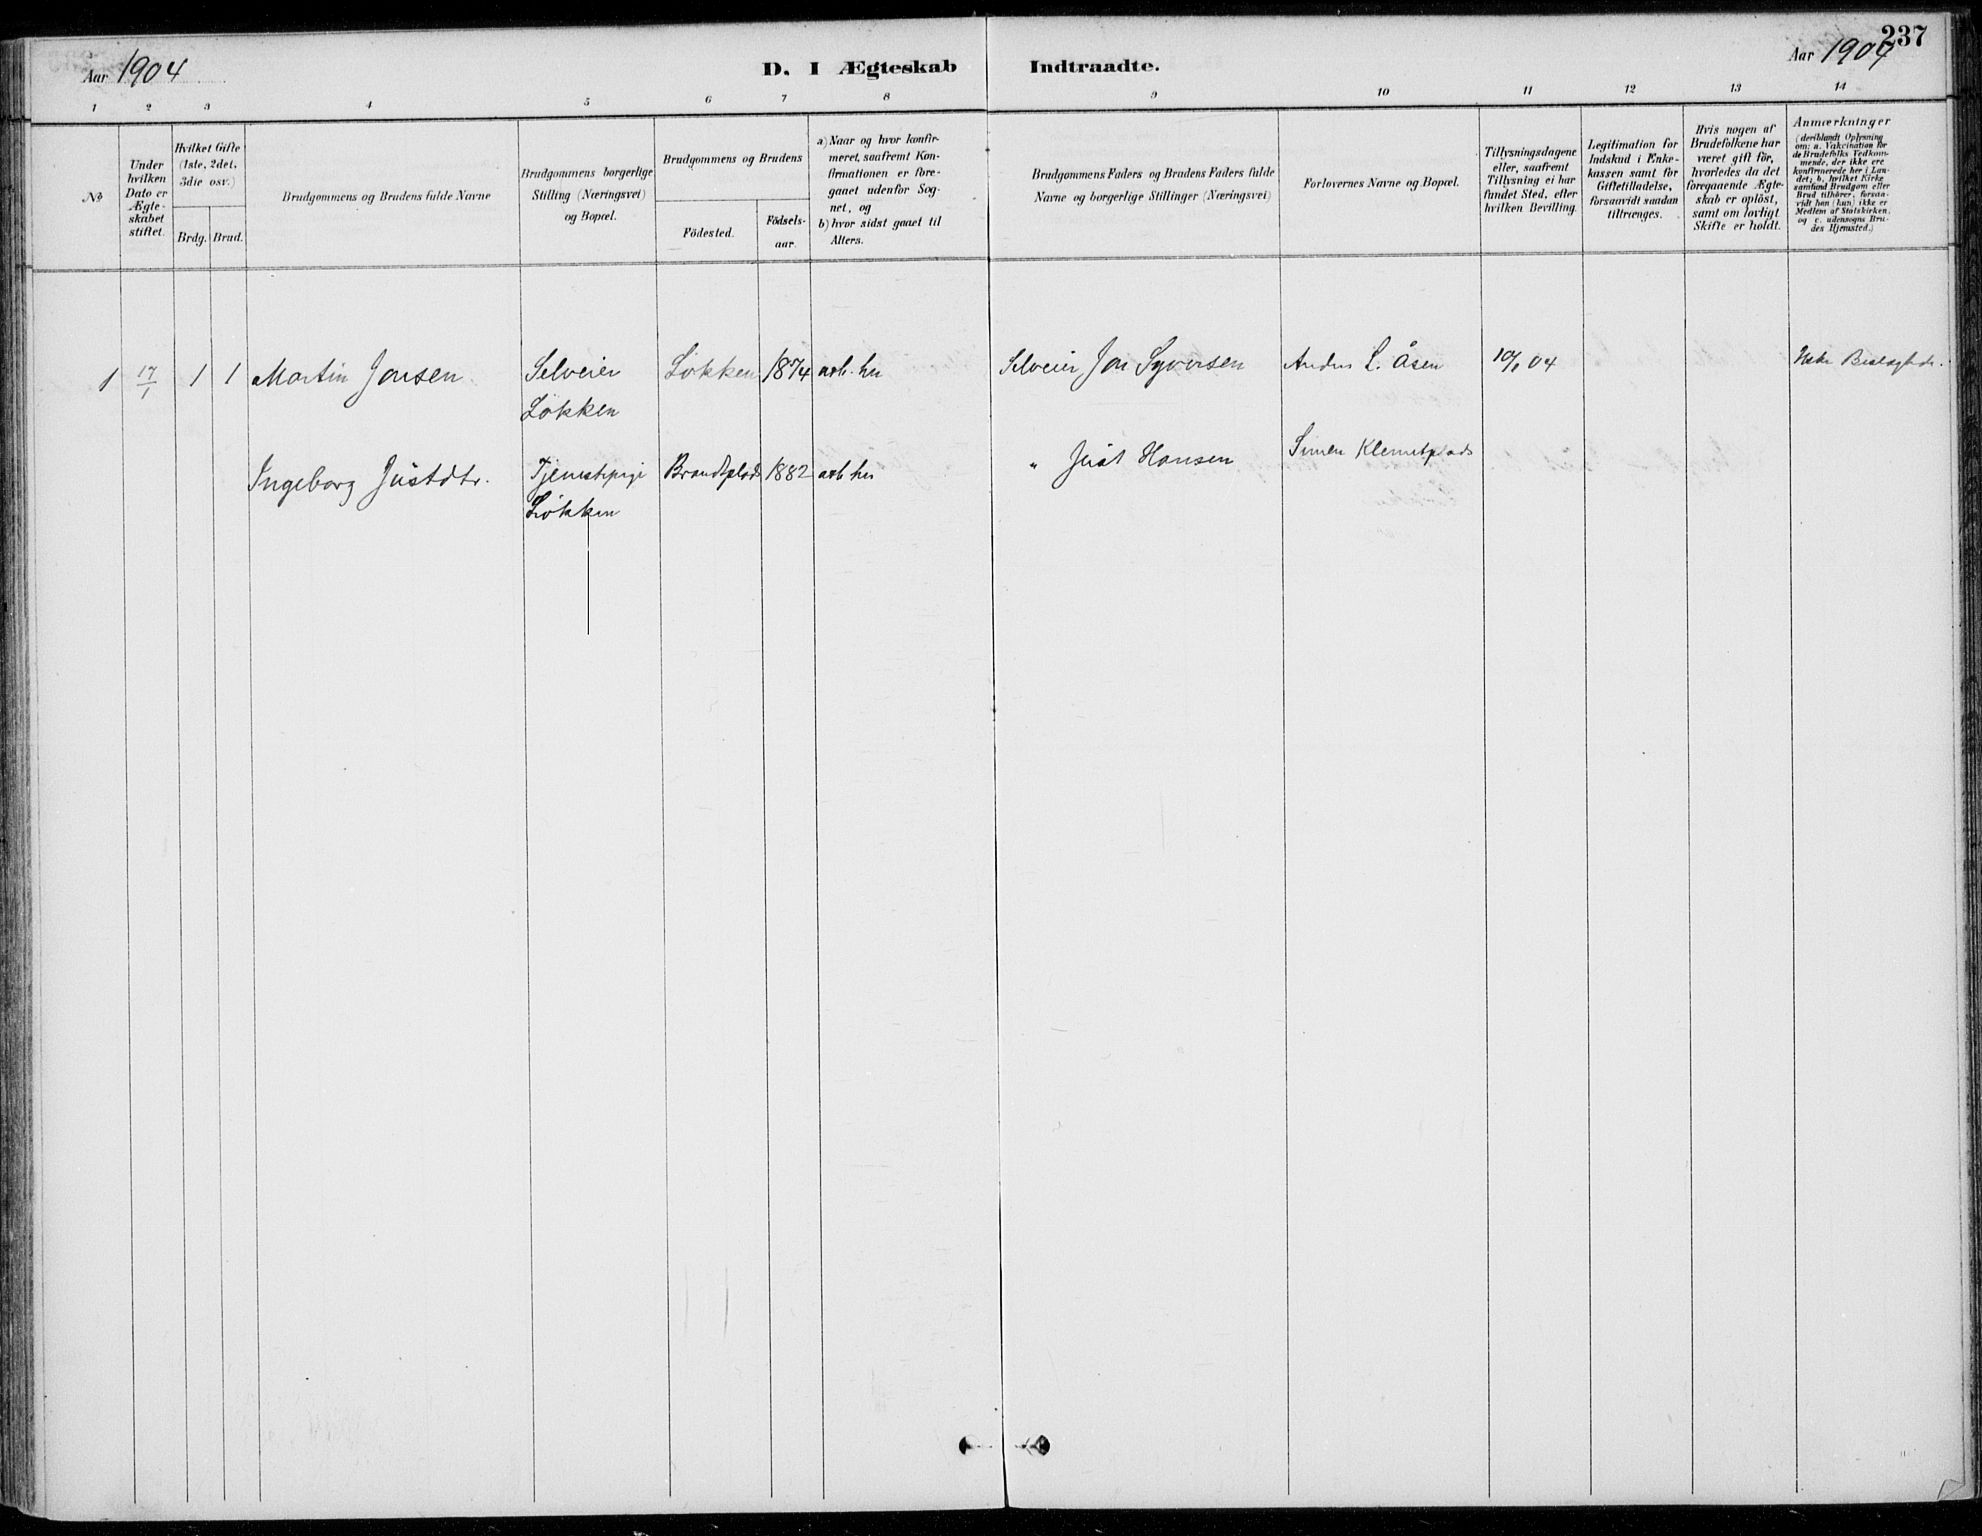 237
Aar 1904
D. I Ægteskab Indtraadte.
Aar 1904
1 2 3 4 5 6 7 8 9 10 11 12 13 14
No
Under
hvilken
Dato er
Ægte-
skabet
stiftet.
Hvilket Gifte
(1ste, 2det,
3die osv.)
Brdg. Brud.
Brudgommens og Brudens fulde Navne
Brudgommens borgerlige
Stilling (Næringsvei)
og Bopæl.
Brudgommens og Brudens
Födested.
Födsels-
aar.
a) Naar og hvor konfir-
meret, saafremt Kon-
firmationen er fore-
gaaet udenfor Sog-
net, og
b) hvor sidst gaaet til
Alters.
Brudgommens Faders og Brudens Faders fulde
Navne og borgerlige Stillinger (Næringsvei)
Forlovernes Navne og Bopæl.
Tillysningsdagene
eller, saafremt
Tillysning ei har
fundet Sted, efter
hvilken Bevilling.
Legitimation for
Indskud i Enke-
kassen samt for
Giftetilladelse,
forsaavidt saadan
tiltrænges.
Hvis nogen af
Brudefolkene har
været gift för,
hvorledes da det
foregaaende Ægte-
skab er oplöst,
samt om lovligt
Skifte er holdt.
Anmærkninger
(deriblandt Oplysning
om: a. Vakcination for
de Brudefolks Vedkom-
mende, der ikke ere
konfirmerede her i Lan-
det; b. hvilket Kirke
samfund Brudgom eller
Brud tilhörer, forsaa-
vidt han (hun) ikke er
Medlem af Statskirken,
og c. udensogns Bru-
des Hjemsted.)
1 17/1 1 1 Martin Jonsen Selveier Løkken 1874 Selveier Jon Syversen Anders L. Åsen 10/1 04
Løkken
Ingeborg Justdtr. Tjenestepige Brandtplads 1882 " Just Hansen Simen Klemetplads
Løkken